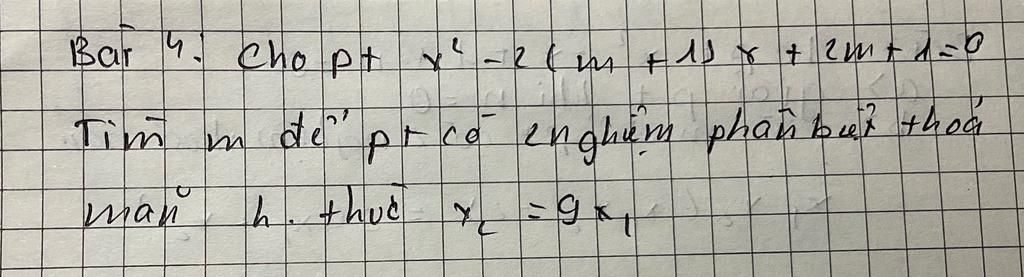 Bài 4: Cho pt x² - 2(m + 1)x + 2m + 1 = 0
Tìm m để pt có 2 nghiệm phân biệt thoả
mãn h. thức x₂ = 9x₁